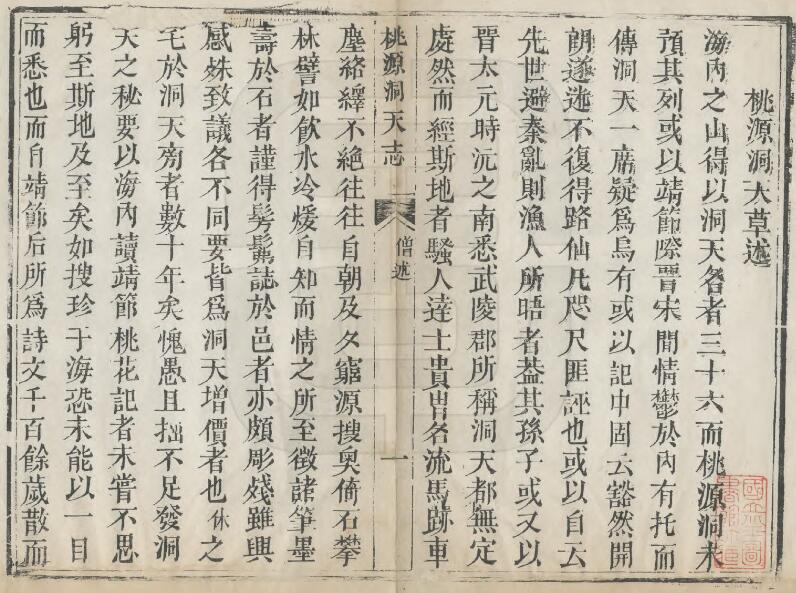 桃源洞天草述
海內之山得以洞天名者三十六而桃源洞未
預其列或以靖節際晉宋閒情鬱於內有托而
傳洞天一席疑爲烏有或以記中固云豁然開
朗遂迷不復得路仙凡咫尺匪誣也或以自云
先世避秦亂則漁人所晤者葢其孫子或又以
晉太元時沅之南悉武陵郡所稱洞天都無定
處然而經斯地者騷人達士貴胄名流馬跡車
桃源洞天志
僧述
一
塵絡繹不絕往往自朝及夕窮源搜奧倚石攀
林譬如飲水冷煖自知而情之所至徵諸筆墨
壽於石者謹得髣髴誌於邑者亦頗彫殘雖興
感殊致議各不同要皆爲洞天增價者也休之
宅於洞天旁者數十年矣愧愚且拙不足發洞
天之秘要以海內讀靖節桃花記者未嘗不思
躬至斯地及至矣如搜珍于海恐未能以一目
而悉也而自靖節后所爲詩文千百餘歲散而